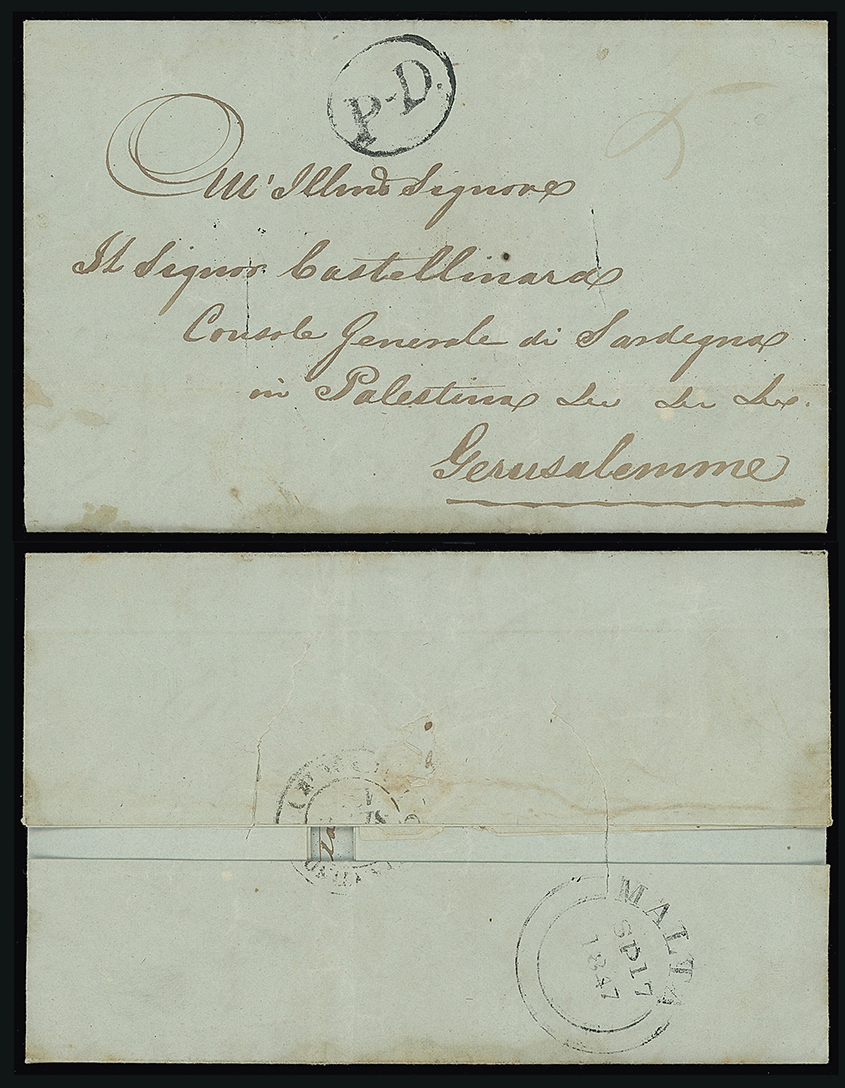 P.D.
All' Illmo Signore
Il Signor Castellinard
Console Generale di Sardegna
in Palestina
Gerusalemme
MALTA
SP 17
1847